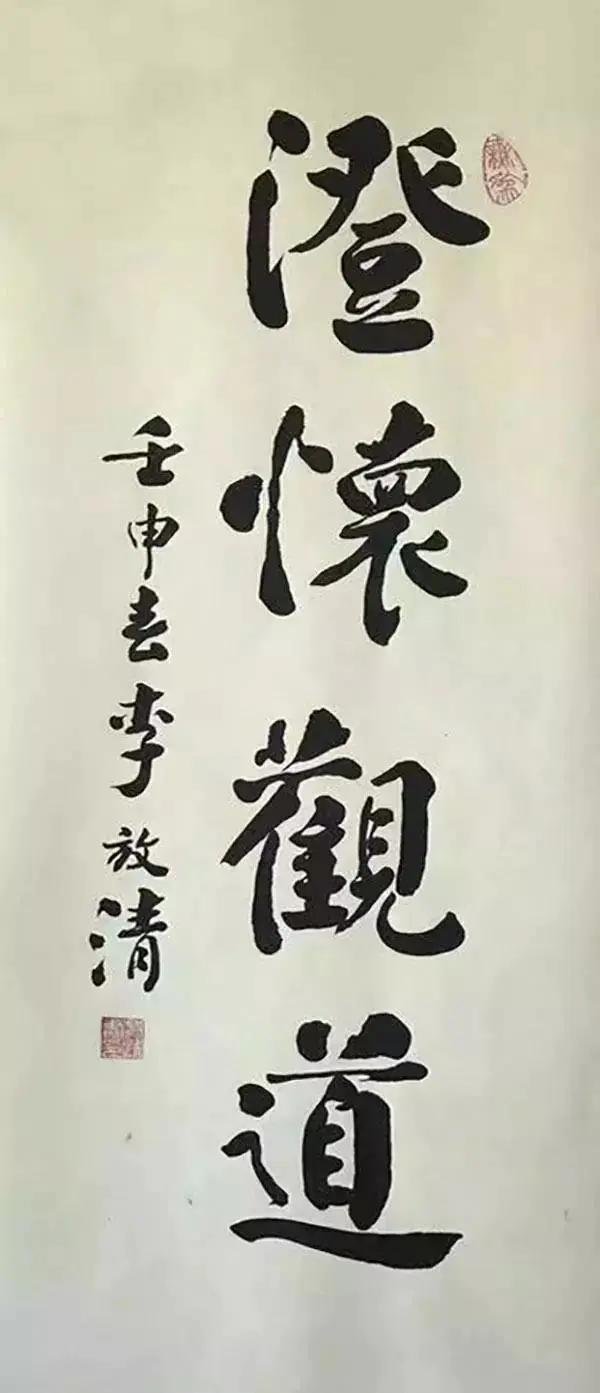 澄懷觀道
壬申春李放清